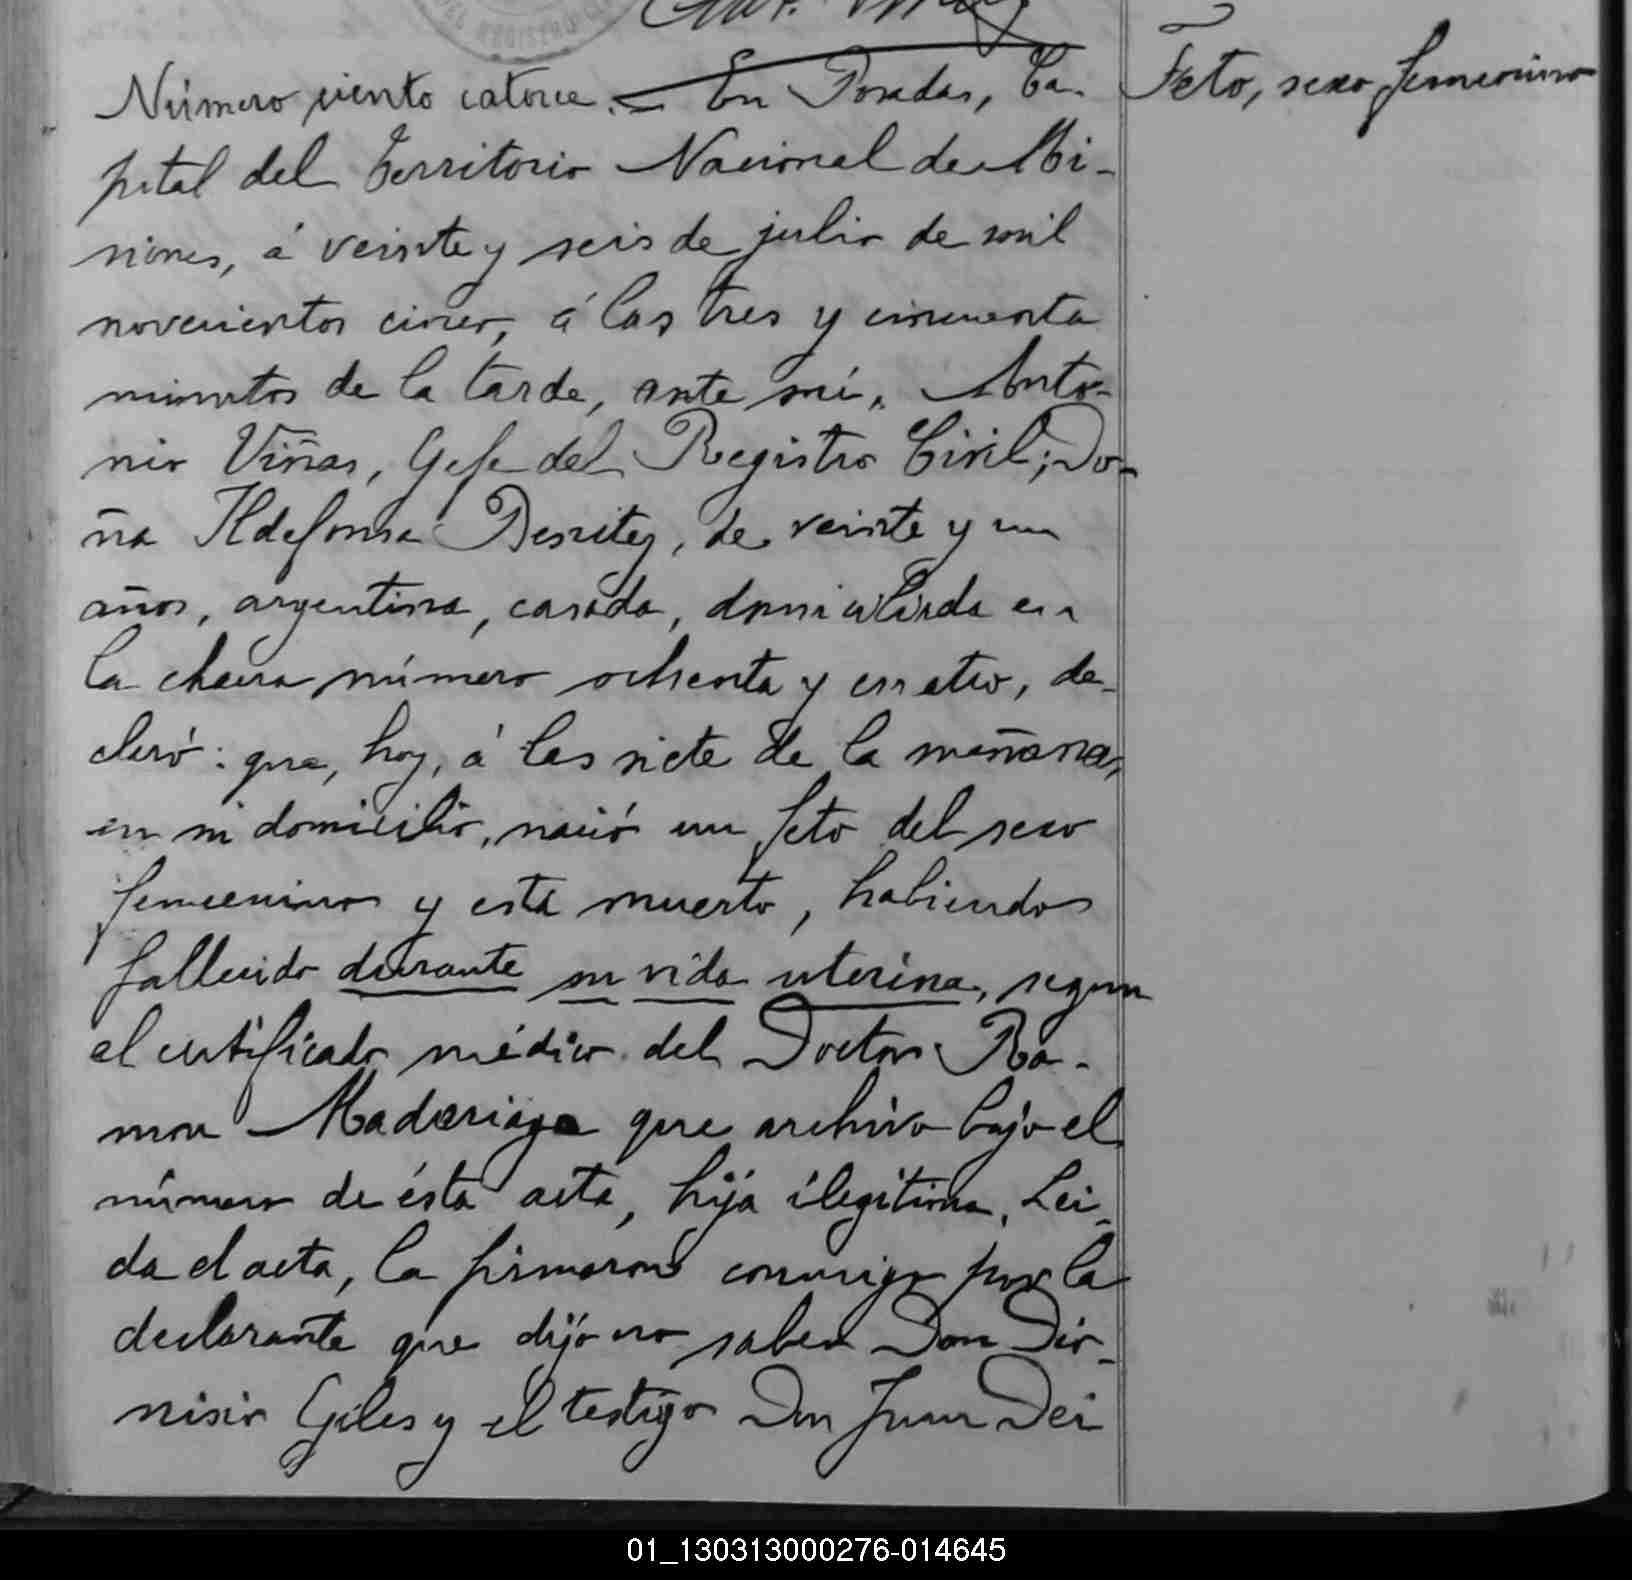 Feto, sexo femenino
Número ciento catorce. En Posadas, Ca-
pital del Territorio Nacional de Mi-
siones, á veinte y seis de julio de mil
novecientos cinco, á las tres y cincuenta
minutos de la tarde, ante mí, Anto-
nio Viñas, Gefe del Registro Civil; Do-
ña Ildefonsa Benitez, de veinte y un
años, argentina, casada, domiciliada en
la chacra número ochenta y cuatro, de-
claró: que, hoy, á las siete de la mañana,
en su domicilio, nació un feto del sexo
femenino y está muerto, habiendo
fallecido durante su vida uterina, segun
el certificado médico del Doctor Ra-
mon Madariaga que archivo bajo el
número de ésta acta, hija ilegitima. Lei-
da el acta, la firmaron conmigo por la
declarante que dijo no saber Don Dio-
nisio Giles y el testigo Don Juan Dei
01_130313000276-014645